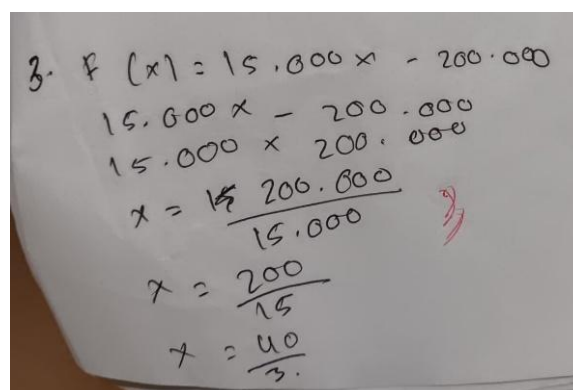 3. F (x) = 15.000 x - 200.000
15.000 x - 200.000
15.000 x 200.000
x = 200.000
15.000
x = 200
15
x = 40
3.